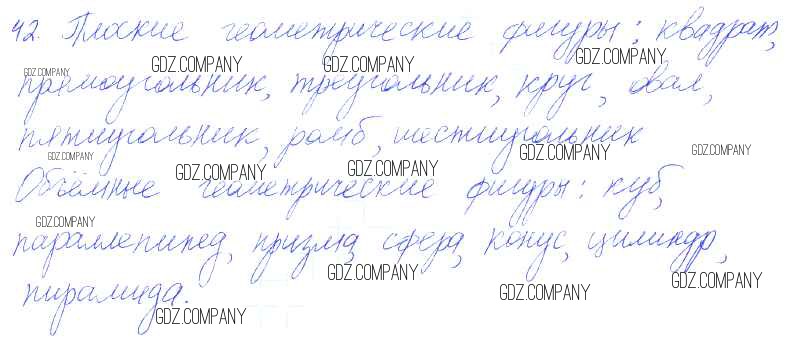 42. Плоские геометрические фигуры: квадрат,
GDZ.COMPANY GDZ.COMPANY GDZ.COMPANY GDZ.COMPANY
прямоугольник, треугольник, круг, овал,
пятиугольник, ромб, шестиугольник
GDZ.COMPANY GDZ.COMPANY GDZ.COMPANY GDZ.COMPANY GDZ.COMPANY
Объёмные геометрические фигуры: куб,
GDZ.COMPANY
параллепипед, призма, сфера, конус, цилиндр,
GDZ.COMPANY GDZ.COMPANY
пирамида.
GDZ.COMPANY GDZ.COMPANY